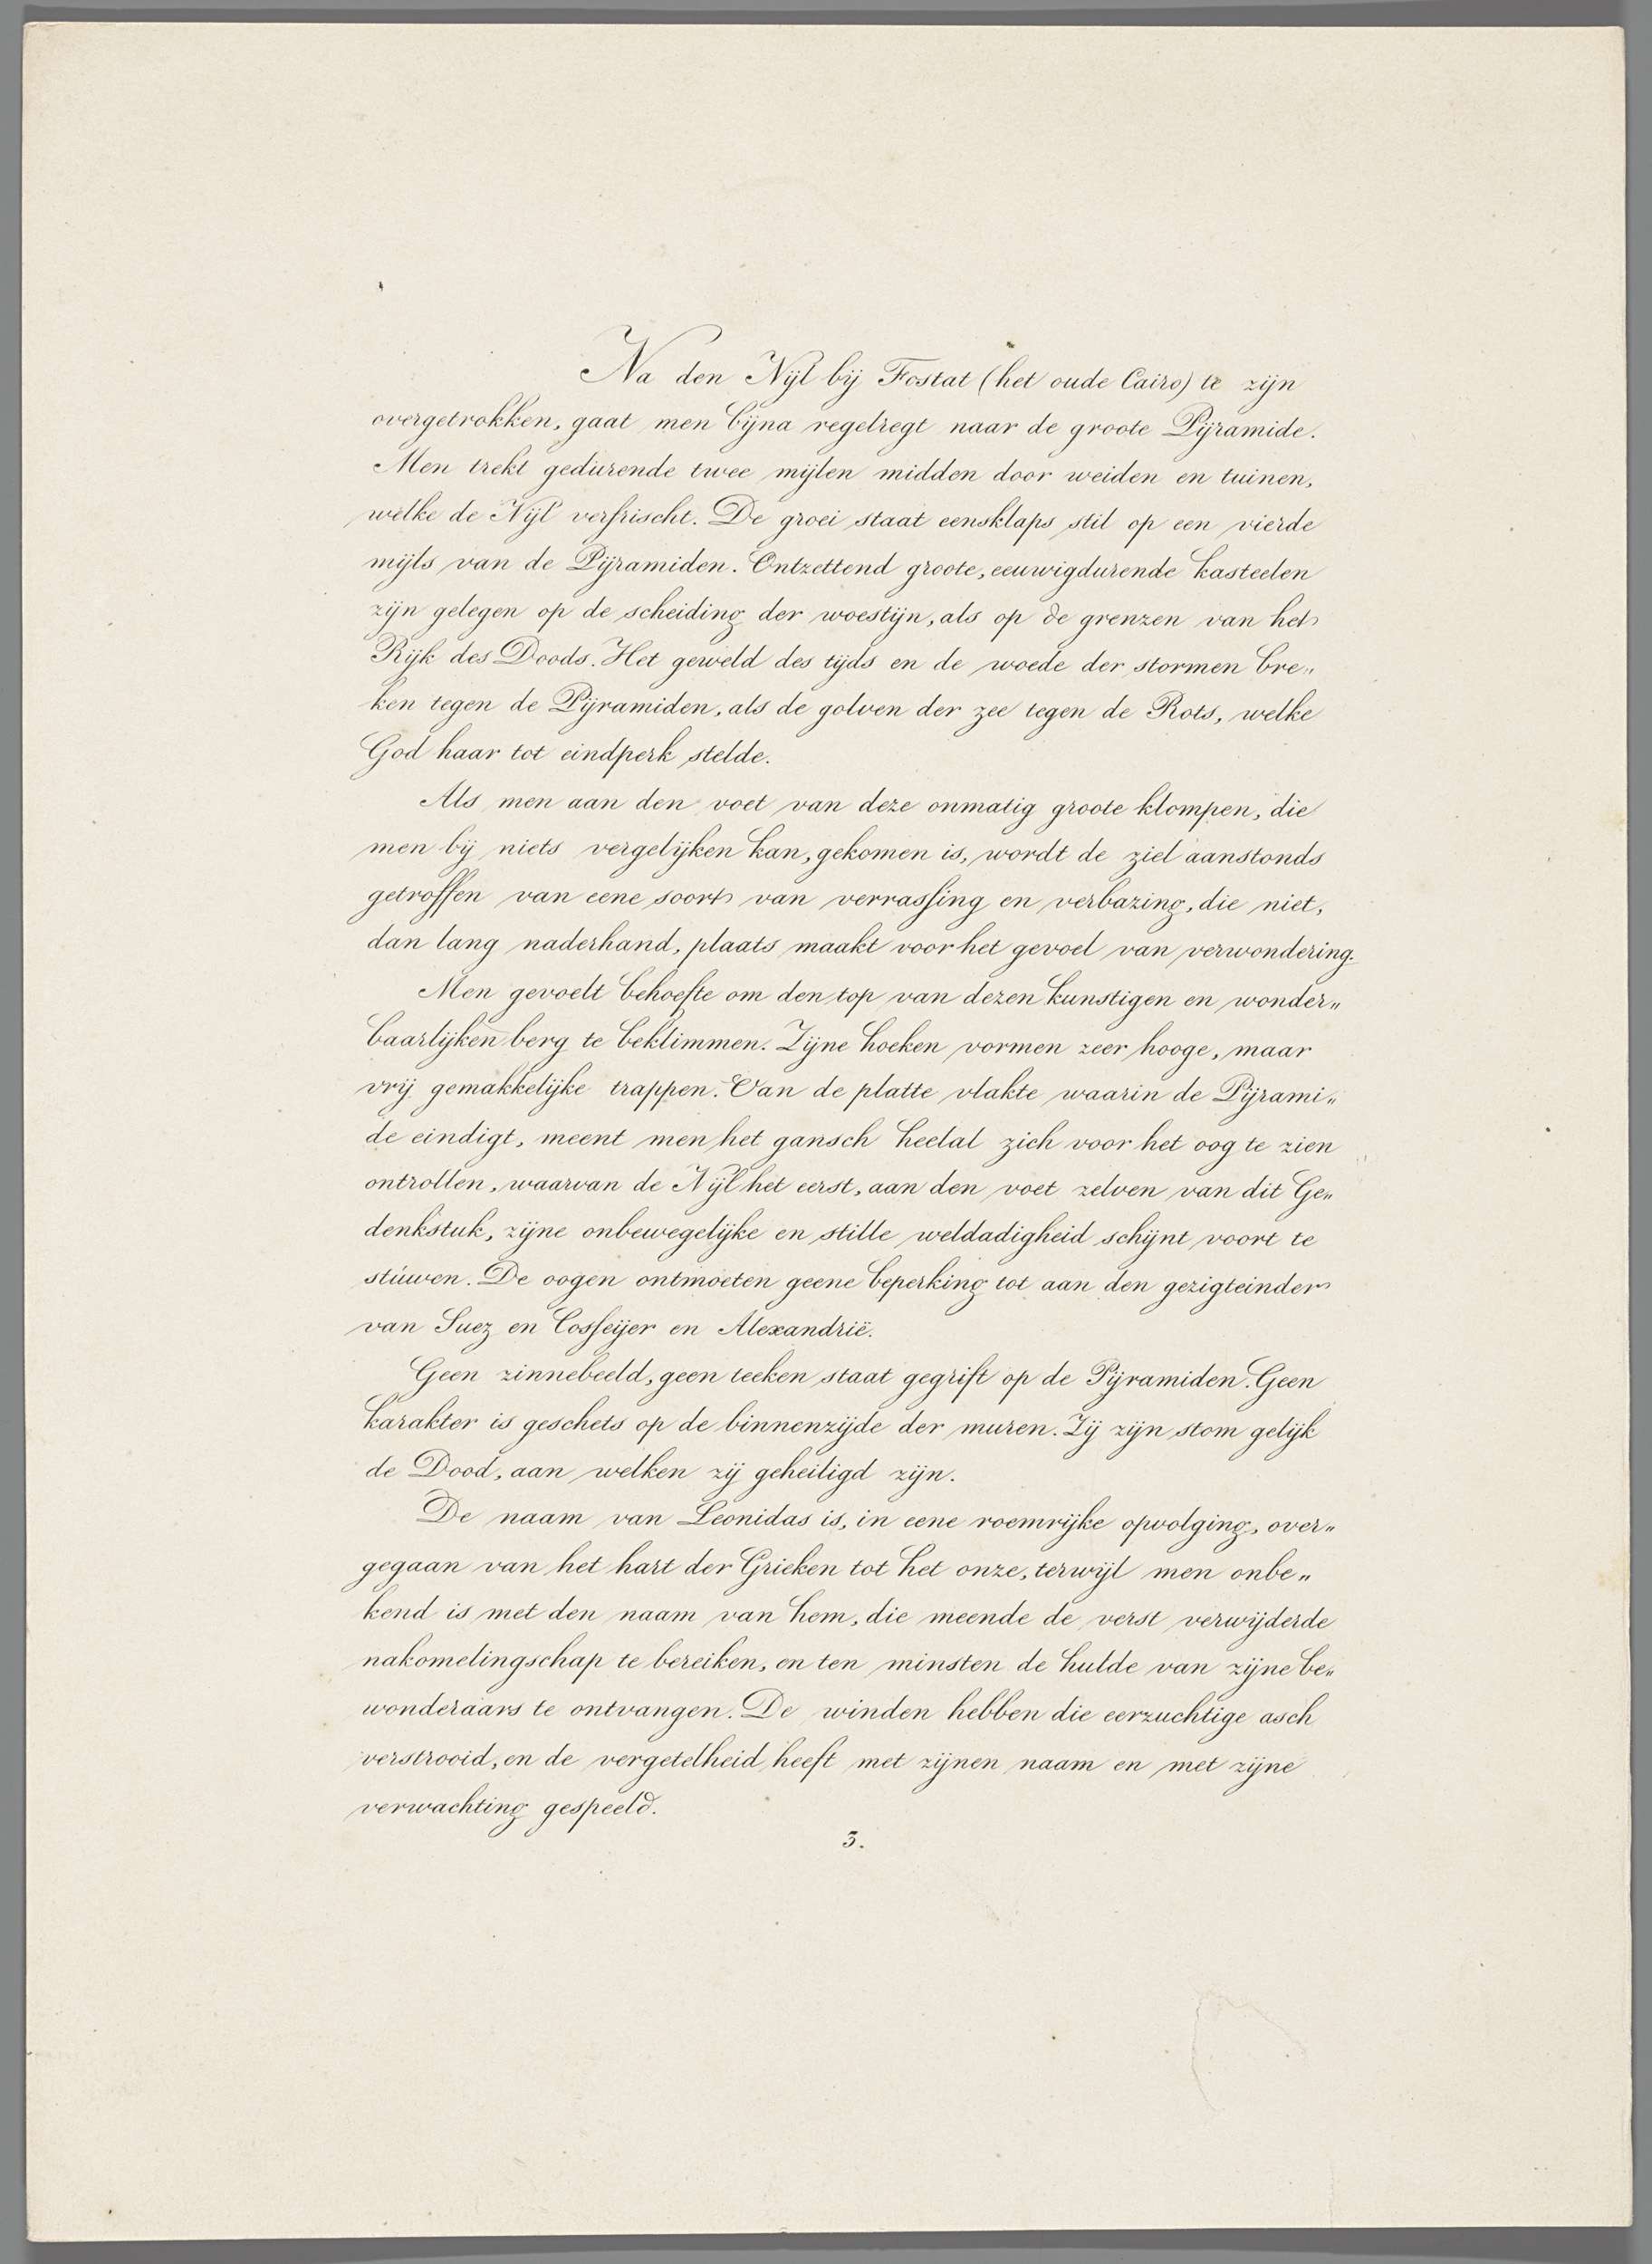 Na den Nijl bij Fostat (het oude Cairo) te zijn
overgetrokken, gaat men bijna regelregt naar de groote Pijramide.
Men trekt gedurende twee mijlen midden door weiden en tuinen,
welke de Nijl verfrischt. De groei staat eensklaps stil op een vierde
mijls van de Pijramiden. Ontzettend groote, eeuwigdurende kasteelen
zijn gelegen op de scheiding der woestijn, als op de grenzen van het
Rijk des Doods. Het geweld des tijds en de woede der stormen bre„
ken tegen de Pijramiden, als de golven der zee tegen de Rots, welke
God haar tot eindperk stelde.
Als men aan den voet van deze onmatig groote klompen, die
men bij niets vergelijken kan, gekomen is, wordt de ziel aanstonds
getroffen van eene soort van verrassing en verbazing, die niet,
dan lang naderhand, plaats maakt voor het gevoel van verwondering.
Men gevoelt behoefte om den top van dezen kunstigen en wonder„
baarlijken berg te beklimmen. Zijne hoeken vormen zeer hooge, maar
vrij gemakkelijke trappen. Van de platte vlakte waarin de Pijrami„
de eindigt, meent men het gansch heelal zich voor het oog te zien
ontrollen, waarvan de Nijl het eerst, aan den voet zelven van dit Ge„
denkstuk, zijne onbewegelijke en stille weldadigheid schijnt voort te
stúwen. De oogen ontmoeten geene beperking tot aan den gezigteinder
van Suez en Cosseijer en Alexandrië.
Geen zinnebeeld, geen teeken staat gegrift op de Pijramiden. Geen
karakter is geschets op de binnenzijde der muren. Zij zijn stom gelijk
de Dood, aan welken zij geheiligd zijn.
De naam van Leonidas is, in eene roemrijke opvolging, over„
gegaan van het hart der Grieken tot het onze, terwijl men onbe„
kend is met den naam van hem, die meende de verst verwijderde
nakomelingschap te bereiken, en ten minsten de hulde van zijne be„
wonderaars te ontvangen. De winden hebben die eerzuchtige asch
verstrooid, en de vergetelheid heeft met zijnen naam en met zijne
verwachting gespeeld.
3.